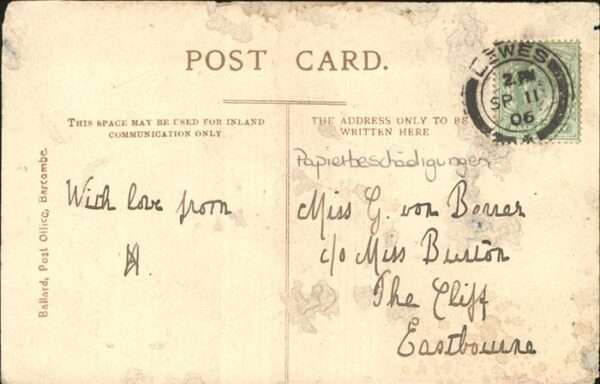 POST CARD.
THIS SPACE MAY BE USED FOR INLAND
COMMUNICATION ONLY
THE ADDRESS ONLY TO BE
WRITTEN HERE
LEWES
2 PM
SP 11
06
Papierbeschädigungen
With love from
H.
Miss G. von Borrer
c/o Miss Burton
The Cliff
Eastbourne
Ballard, Post Office, Barcombe.